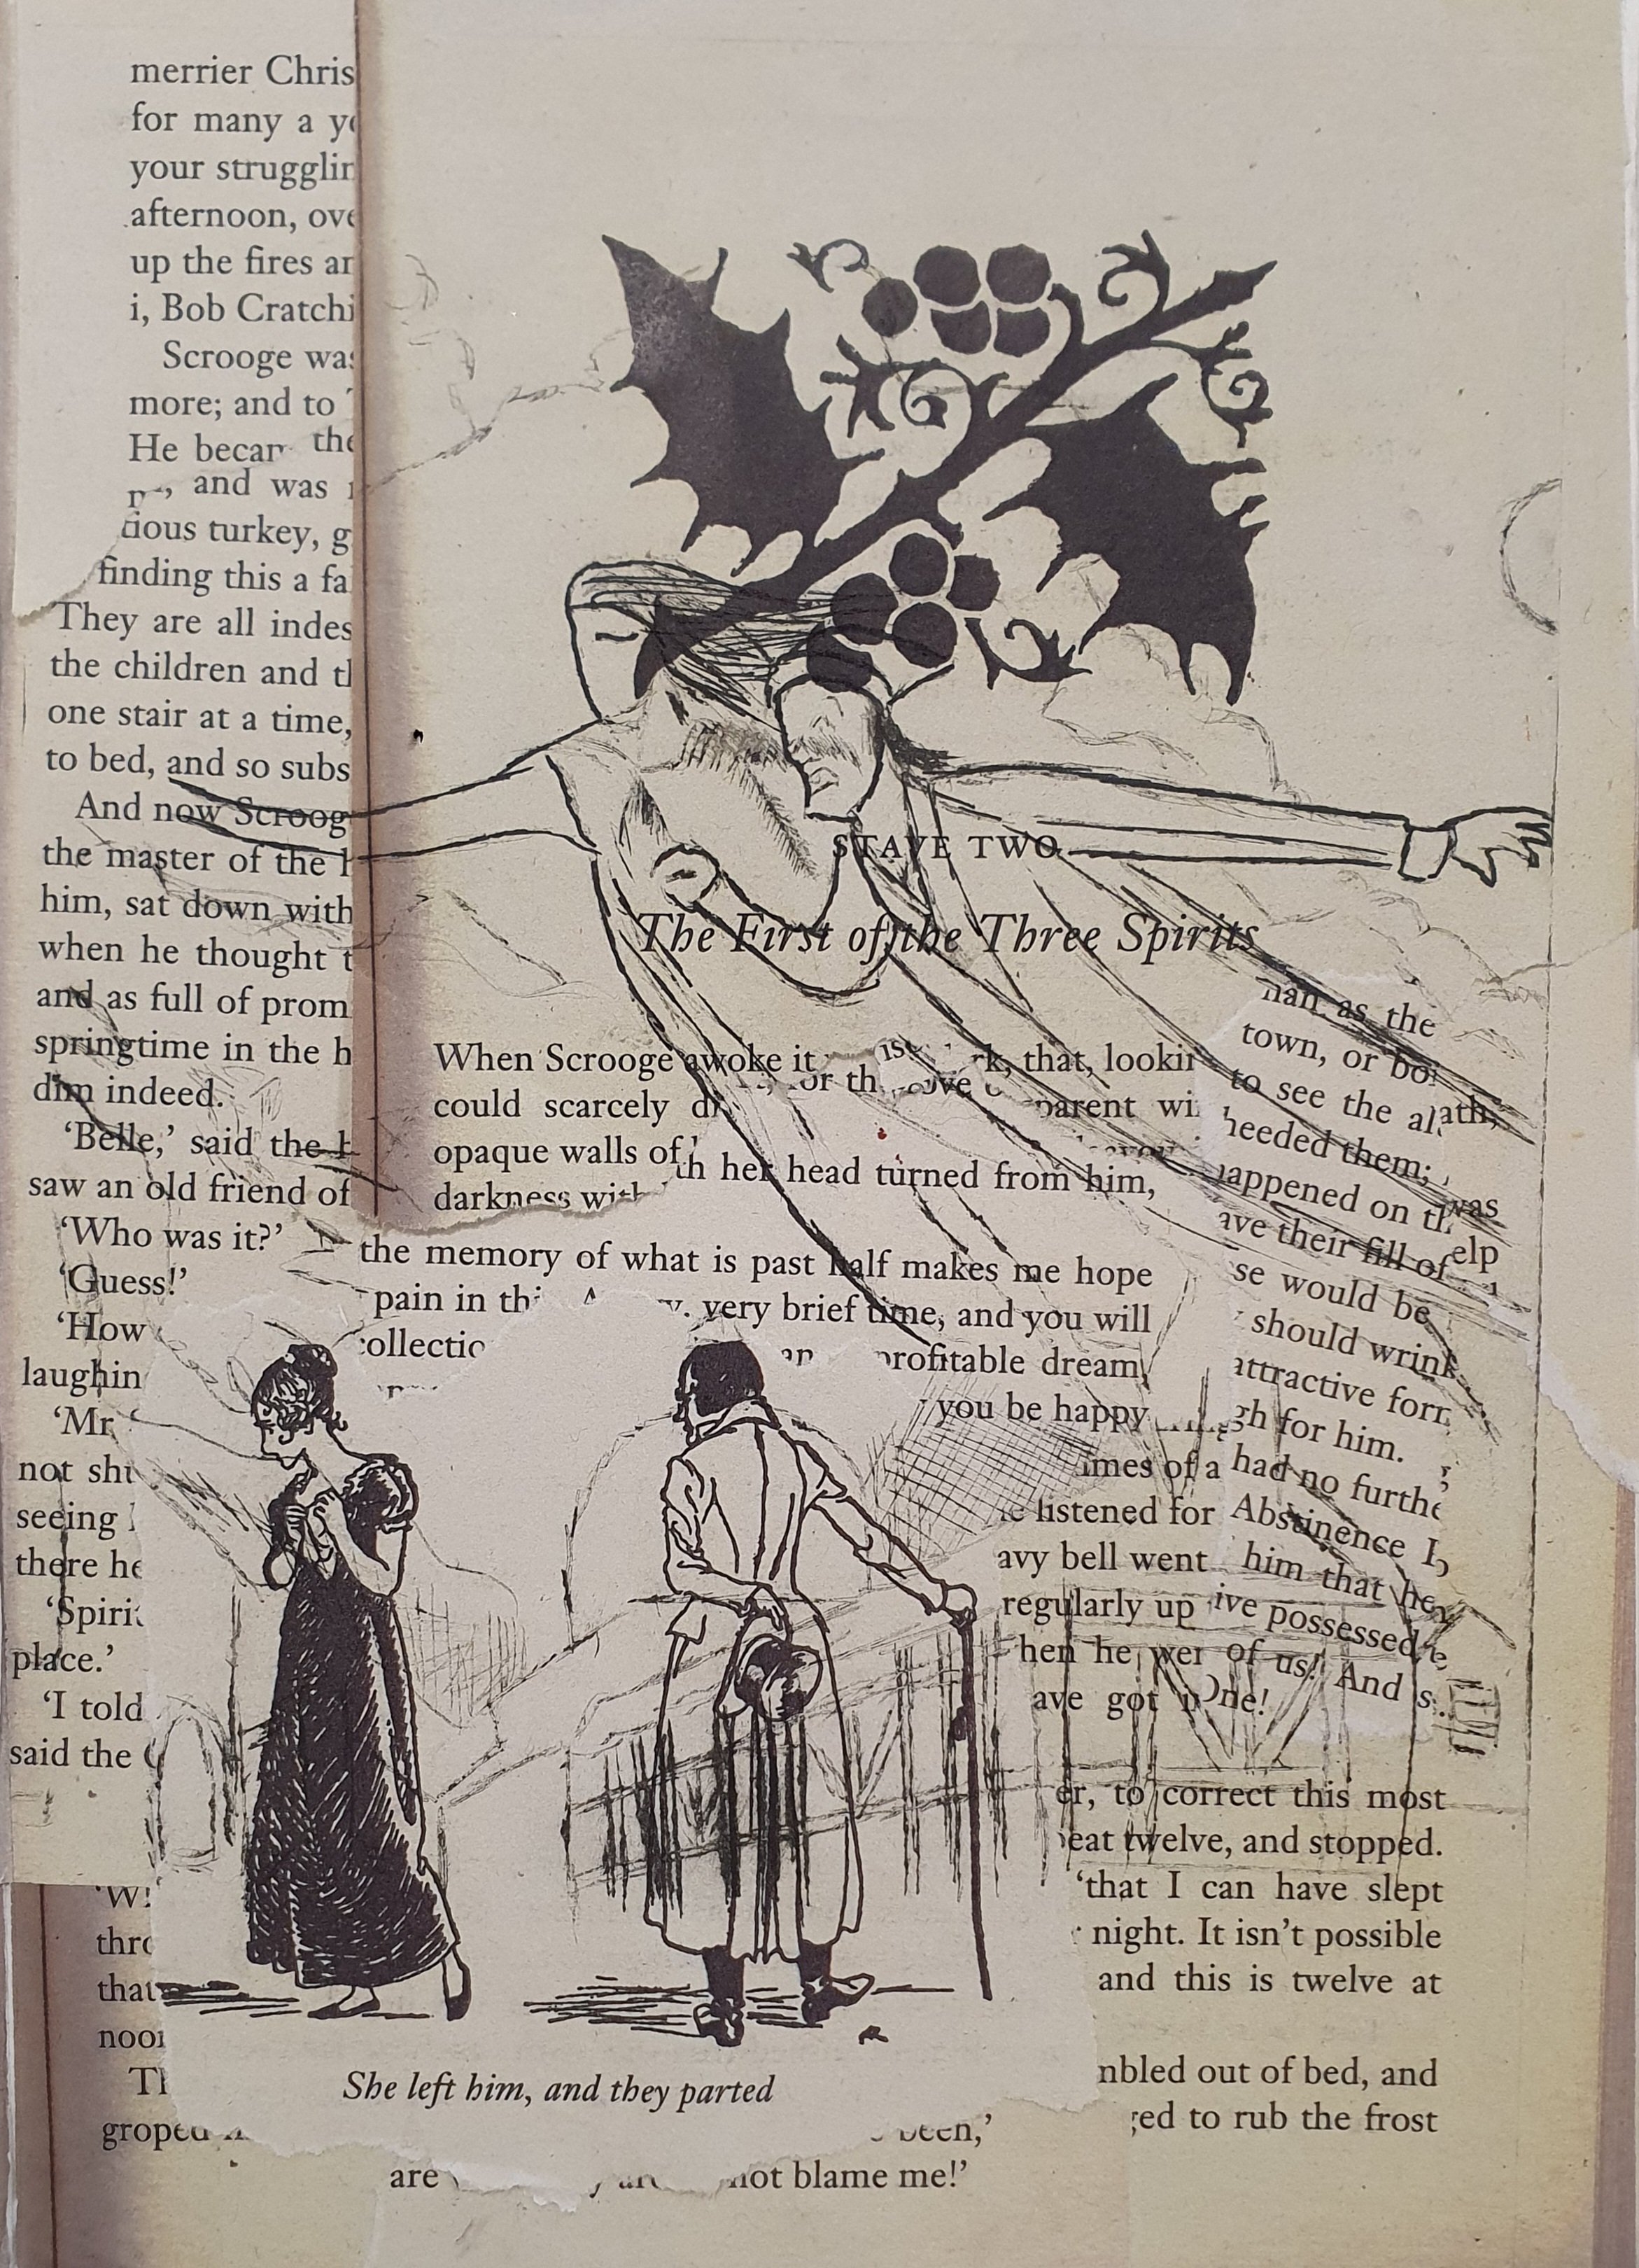 merrier Chris
for many a ye
your strugglin
afternoon, ove
up the fires an
i, Bob Cratchi
Scrooge was
more; and to
He becam the
and was
cious turkey, g
finding this a fa
They are all indes
the children and th
one stair at a time,
to bed, and so subs
And now Scroog
the master of the h
him, sat down with
when he thought t
and as full of prom
springtime in the h
dim indeed.
‘Belle,’ said the h
saw an old friend of
‘Who was it?’
‘Guess!’
‘How
laughin
‘Mr.
not shu
seeing
there he
‘Spirit
place.’
‘I told
said the
thro
that
noon
Th
groped
STAVE TWO
The First of the Three Spirits
When Scrooge awoke it rk, that, lookin
for th love o
could scarcely di parent wi
opaque walls of
th her head turned from him,
darkness with
the memory of what is past half makes me hope
pain in thi very brief time, and you will
collectio profitable dream,
you be happy
imes of a
listened for
avy bell went
regularly up
hen he wer
ave got
man as the
town, or bo
to see the al ath,
heeded them; was
happened on th
ave their fill of elp
se would be
should wrink
attractive form
gh for him.
had no furthe
Abstinence
him that he
ive possessed
of us! And
One!
er, to correct this most
eat twelve, and stopped.
‘that I can have slept
night. It isn’t possible
and this is twelve at
mbled out of bed, and
ged to rub the frost
She left him, and they parted
been,’
are not blame me!’